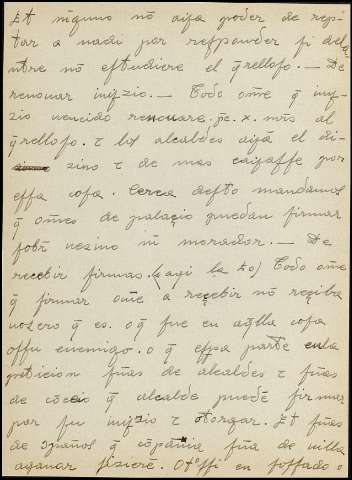 Et ninguno nõ aya poder de rep-
tar a nadi por responder si dela-
ntre nõ estudiere el q̃relloso. — De
renouar iuyzio. — Todo ome q̃ iuy-
zio uencido renouare. pc. x. mrs al
q̃relloso. τ los alcaldes aiã el di-
zino τ de mas cayasse por
essa cosa. Cerca desto mandamos
q̃ omes de palaçio puedan firmar
sobr̃ uezino ni morador. — De
recebir firmas. (aqi la to) Todo ome
q̃ firmar ome a reçebir nõ reçiba
uozero q̃ es. o q̃ fue en aq̃lla cosa
o ssu enemigo. o q̃ essa parte en la
petiçion firmas de alcaldes τ firmas
de conceio q̃ alcalde puede firmar
por su iuyzio τ otorgar. Et firmas
de españos q̃ conpañia fina de uilla
a ganar fizierẽ. Otossi en fossado o